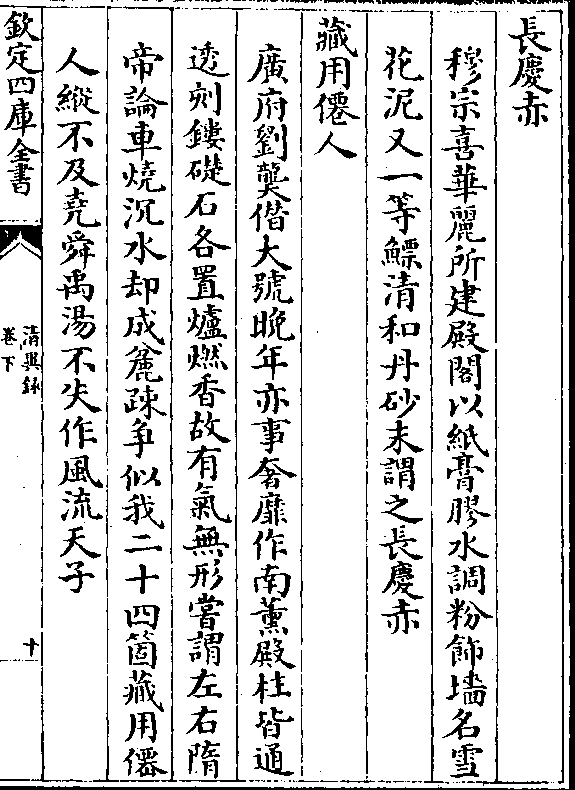 長慶赤
穆宗喜華麗所建殿閣以紙膏膠水調粉飾墻名雪
花泥又一等鰾清和丹砂末謂之長慶赤
藏用僊人
廣府劉龑僭大號晚年亦事奢靡作南薰殿柱皆通
透刻鏤礎石各置爐燃香故有氣無形嘗謂左右隋
帝論車燒沉水却成麄踈争似我二十四箇藏用僊
人縱不及堯舜禹湯不失作風流天子
欽定四庫全書
清異錄
卷下
十